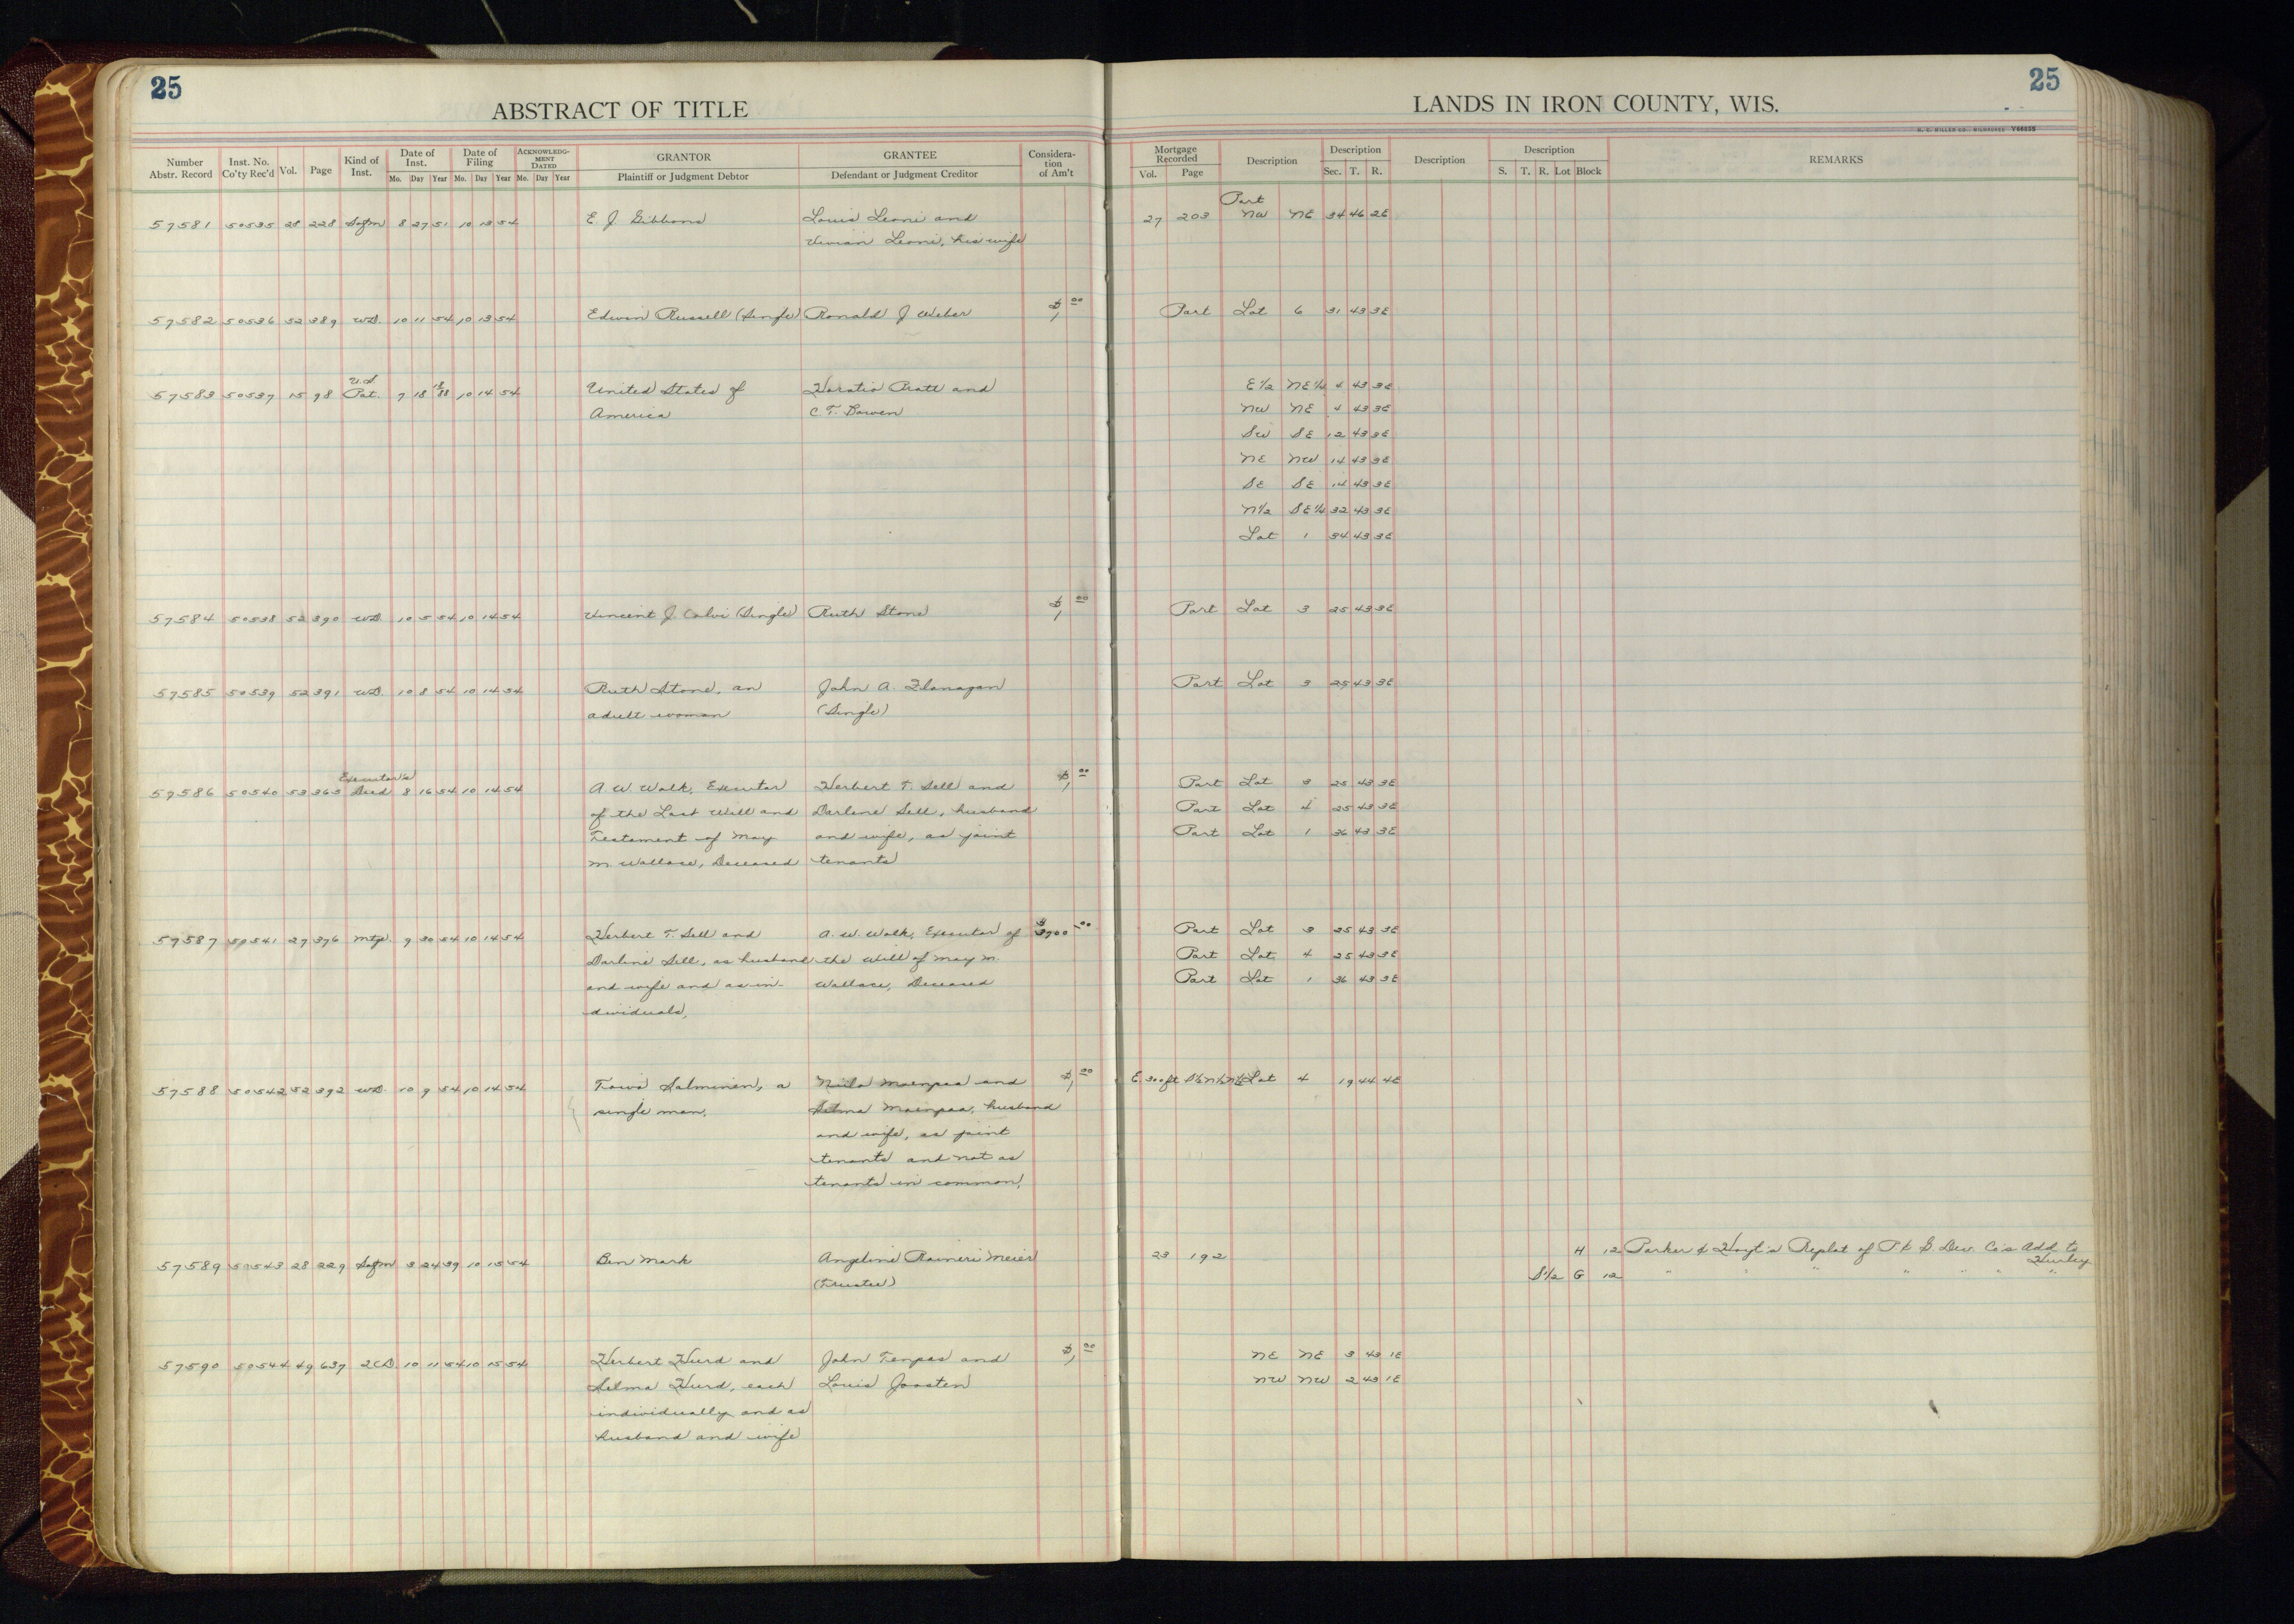 25
ABSTRACT OF TITLE
LANDS IN IRON COUNTY, WIS.
25
Number Abstr. Record Inst. No. Co'ty Rec'd Vol. Page Kind of Inst. Date of Inst. Mo. Day Year Date of Filing Mo. Day Year ACKNOWLEDGMENT DATED Mo. Day Year GRANTOR Plaintiff or Judgment Debtor GRANTEE Defendant or Judgment Creditor Consideration of Am't Mortgage Recorded Vol. Page Description Description Sec. T. R. Description Description S. T. R. Lot Block REMARKS
Part
57581 50535 28 228 Safm 8 27 51 10 13 54 E. J. Gibbons Louis Leoni and 27 203 NW NE 34 46 2E
Vivian Leoni, his wife
57582 50536 52 389 WD. 10 11 54 10 13 54 Edwin Russell (Single) Ronald J Weber $1.00 Part Lot 6 31 43 3E
U.S.
57583 50537 15 98 Pat. 7 18 1888 10 14 54 United States of Horatio Pratt and E1/2 NE1/4 4 43 3E
America C. T. Bowen NW NE 4 43 3E
SW SE 12 43 3E
NE NW 14 43 3E
SE SE 14 43 3E
N1/2 SE1/4 32 43 3E
Lot 1 34 43 3E
57584 50538 52 390 WD. 10 5 54 10 14 54 Vincent J. Calvi (Single) Ruth Stone $1.00 Part Lot 3 25 43 3E
57585 50539 52 391 WD. 10 8 54 10 14 54 Ruth Stone, an John A. Flanagan Part Lot 3 25 43 3E
adult woman (Single)
Executor's
57586 50540 53 363 Deed 8 16 54 10 14 54 A. W. Walk, Executor Herbert T. Sell and $1.00 Part Lot 3 25 43 3E
of the Last Will and Darlene Sell, husband Part Lot 4 25 43 3E
Testament of May and wife, as joint Part Lot 1 36 43 3E
M. Wallace, Deceased tenants
57587 50541 27 376 Mtg. 9 30 54 10 14 54 Herbert T. Sell and A. W. Walk, Executor of $3700.00 Part Lot 3 25 43 3E
Darline Sell, as husband the Will of May M. Part Lot 4 25 43 3E
and wife and as in- Wallace, Deceased Part Lot 1 36 43 3E
dividuals,
57588 50542 52 392 WD. 10 9 54 10 14 54 Toivo Salminen, a Niilo Maenpaa and $1.00 E 300 ft Lot 4 19 44 4E
single man, Selma Maenpaa, husband
and wife, as joint
tenants and not as
tenants in common,
57589 50543 28 229 Safm 3 24 39 10 15 54 Ben Mark Angeline Raineri Meier 23 192 H 12 Parker & Hoyt's Replat of P. & G. Dev. Co's Add. to
Hurley
(Trustee) S1/2 G 12 " " " " " " "
57590 50544 49 637 2CD. 10 11 54 10 15 54 Herbert Hurd and John Tenpas and $1.00 NE NE 3 43 1E
Selma Hurd, each Louis Joosten NW NW 2 43 1E
individually and as
husband and wife